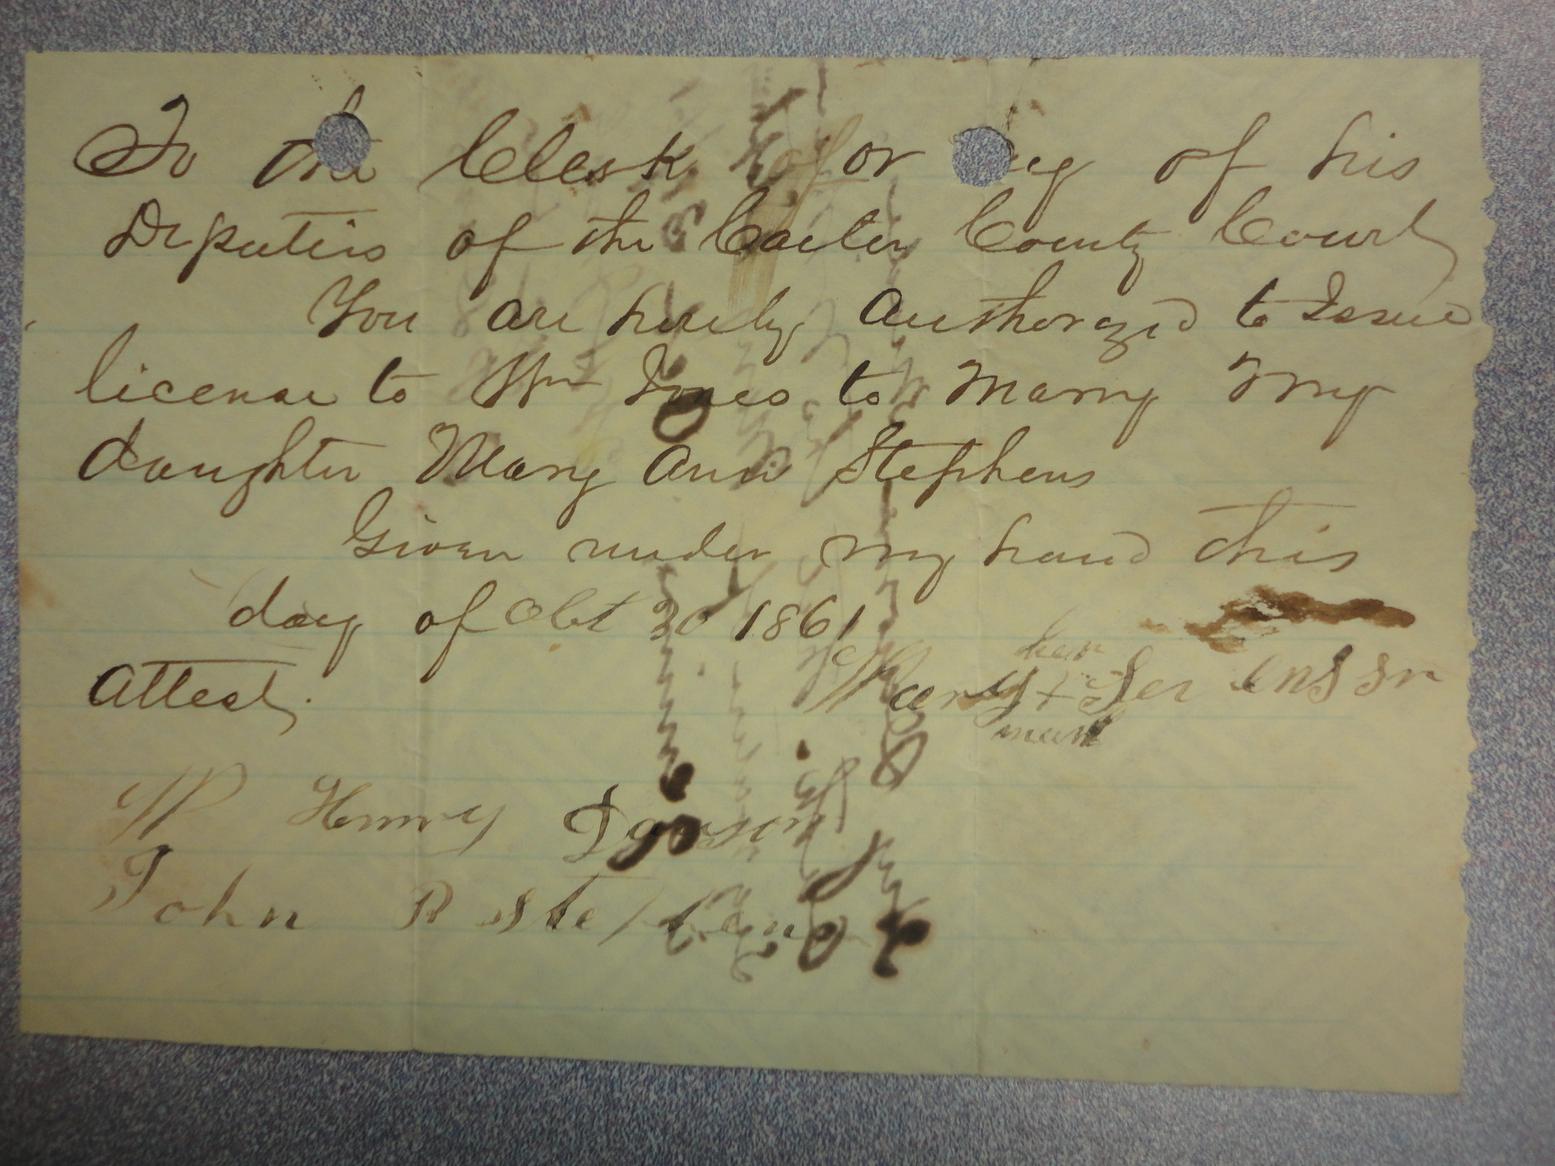 To the Clerk or any of his
Deputies of the Carter County Court
You are hereby Authorized to Issue
license to Wm Jones to Marry My
daughter Mary Ann Stephens
Given under my hand this
day of Oct 30 1861
her
Attest. Mary +
mark
Henry
John R Stephens